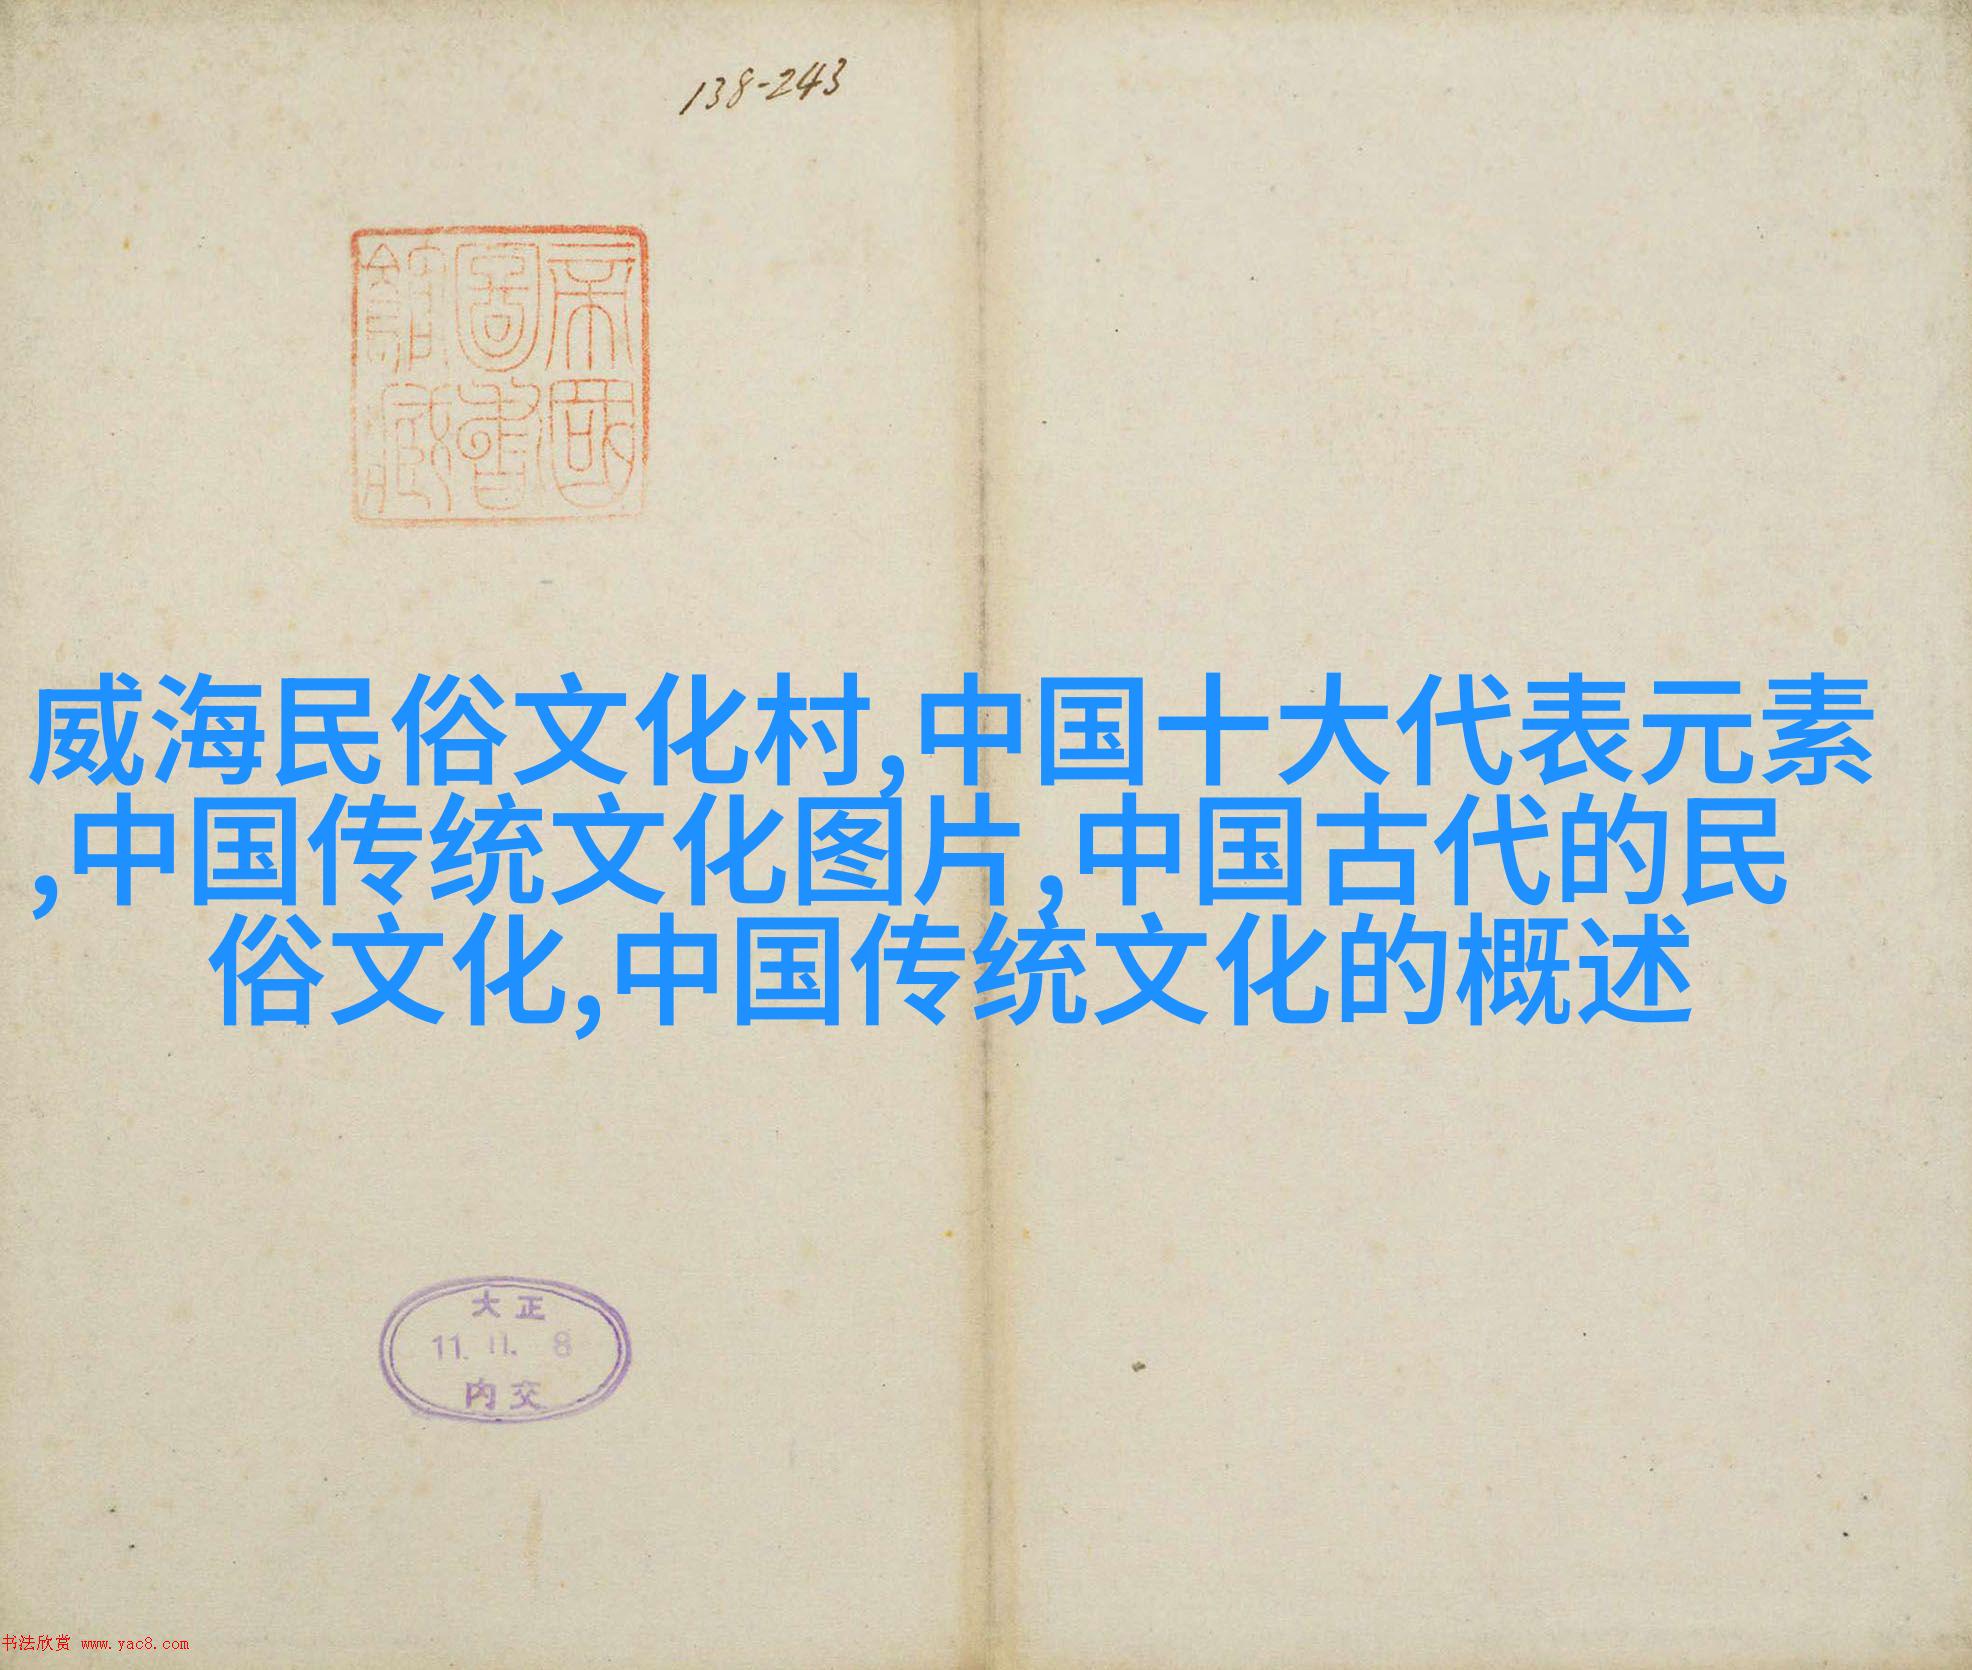 138-243
帝國
圖書
館藏
威海民俗文化村,中国十大代表元素
,中国传统文化图片,中国古代的民
俗文化,中国传统文化的概述
大正
11. 11. 8
内交
书法欣赏 www.yac8.com